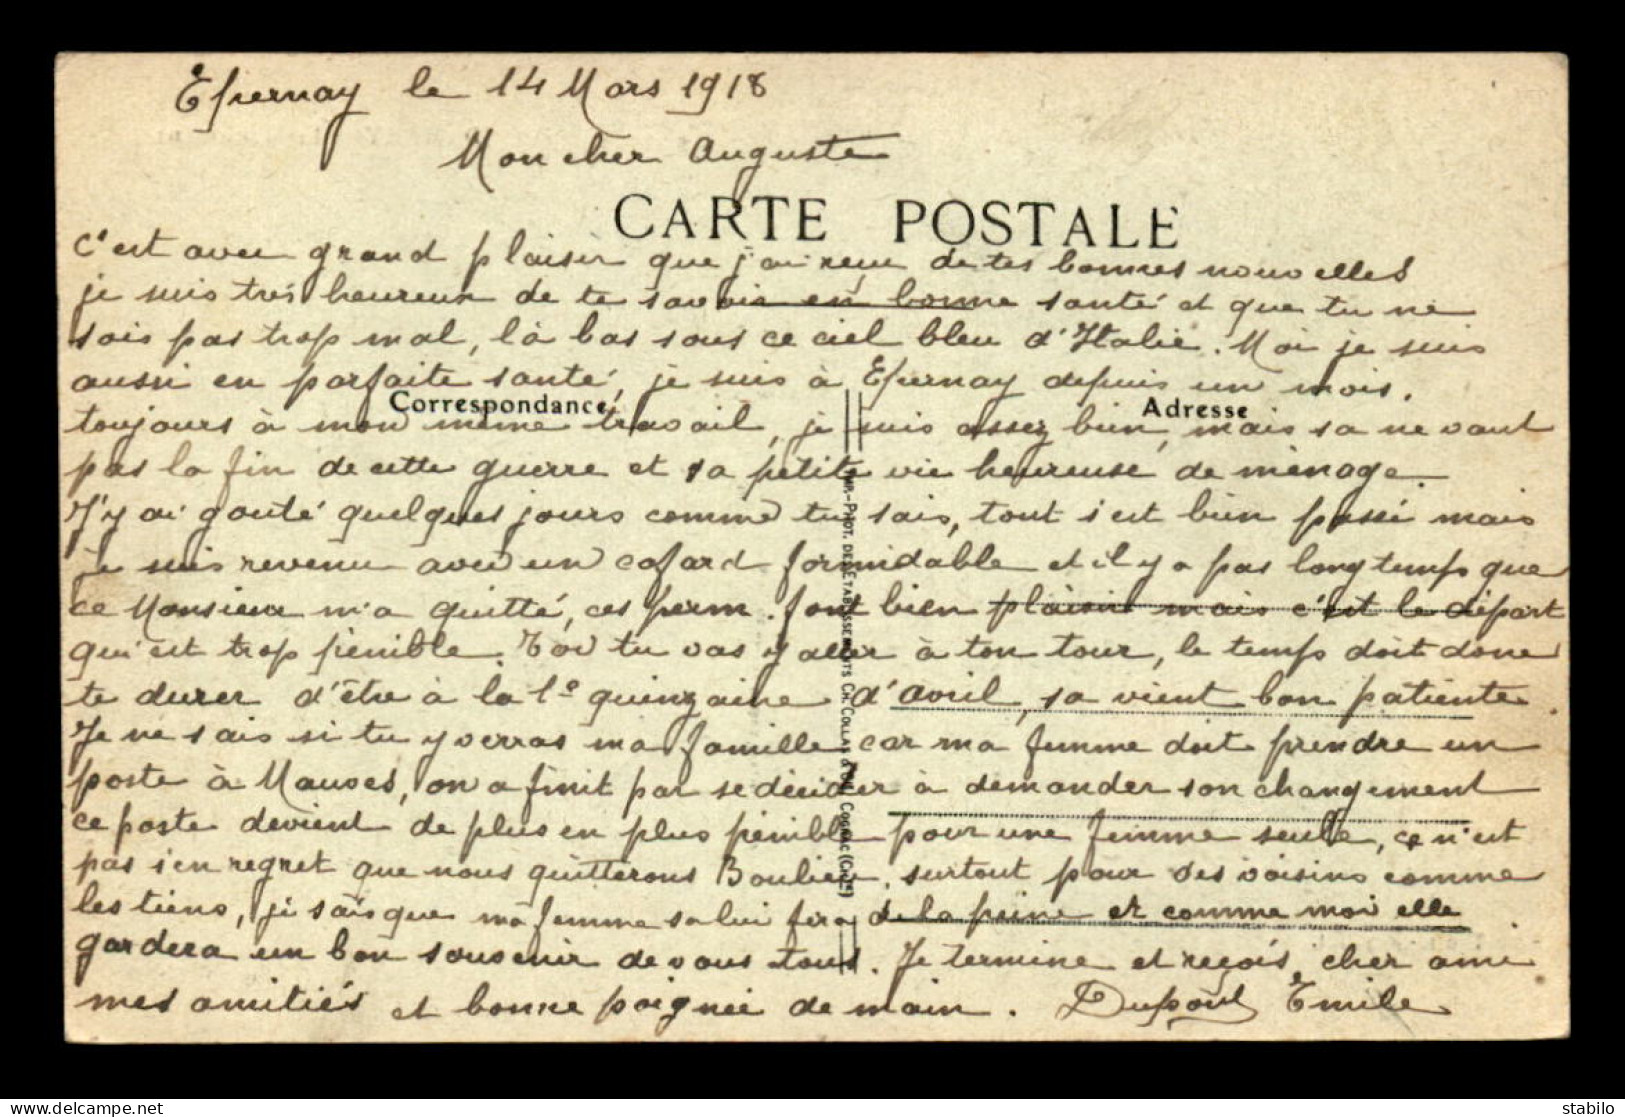 Épernay le 14 Mars 1918
Mon cher Auguste
CARTE POSTALE
C'est avec grand plaisir que j'ai reçu de tes bonnes nouvelles
je suis très heureux de te savoir en bonne santé et que tu ne
sois pas trop mal, là bas sous ce ciel bleu d'Italie. Moi je suis
aussi en parfaite santé, je suis à Épernay depuis un mois.
Correspondance
Adresse
toujours à mon même travail, je suis assez bien, mais sa ne vaut
pas la fin de cette guerre et sa petite vie heureuse de ménage.
J'y ai gouté quelques jours comme tu sais, tout s'est bien passé mais
je suis revenu avec un cafard formidable et il y a pas longtemps que
ce Monsieur m'a quitté, ces perm. font bien plaisir mais c'est le départ
qui est trop pénible. Toi tu vas y aller à ton tour, le temps doit donc
te durer d'être à la 1e quinzaine d'avril, sa vient bon patiente.
Je ne sais si tu y verras ma famille car ma femme doit prendre un
poste à Mauves, on a finit par se décider à demander son changement
ce poste devient de plus en plus pénible pour une femme seule, ce n'est
pas s'en regret que nous quitterons Boulieu, surtout pour des voisins comme
les tiens, je sais que ma femme sa lui fera de la peine et comme moi elle
gardera un bon souvenir de vous tous. Je termine et reçois cher ami
mes amitiés et bonne poignée de main. Dupont Émile
IMP.-PHOT. DES ÉTABLISSEMENTS CH. COLLAS & Cie, COGNAC (Chte)
stabilo